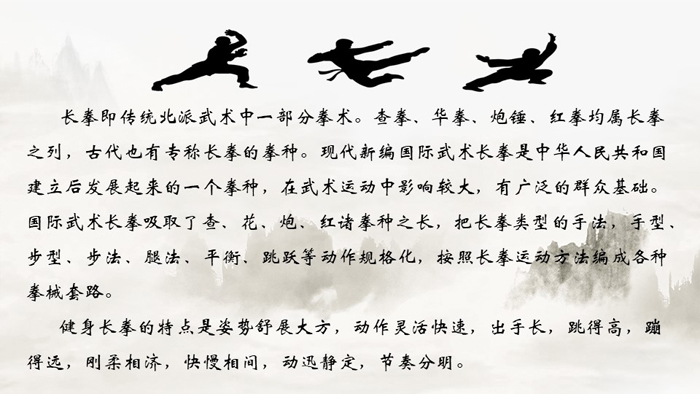 长拳即传统北派武术中一部分拳术。查拳、华拳、炮锤、红拳均属长拳
之列，古代也有专称长拳的拳种。现代新编国际武术长拳是中华人民共和国
建立后发展起来的一个拳种，在武术运动中影响较大，有广泛的群众基础。
国际武术长拳吸取了查、花、炮、红诸拳种之长，把长拳类型的手法，手型、
步型、步法、腿法、平衡、跳跃等动作规格化，按照长拳运动方法编成各种
拳械套路。
健身长拳的特点是姿势舒展大方，动作灵活快速，出手长，跳得高，蹦
得远，刚柔相济，快慢相间，动迅静定，节奏分明。